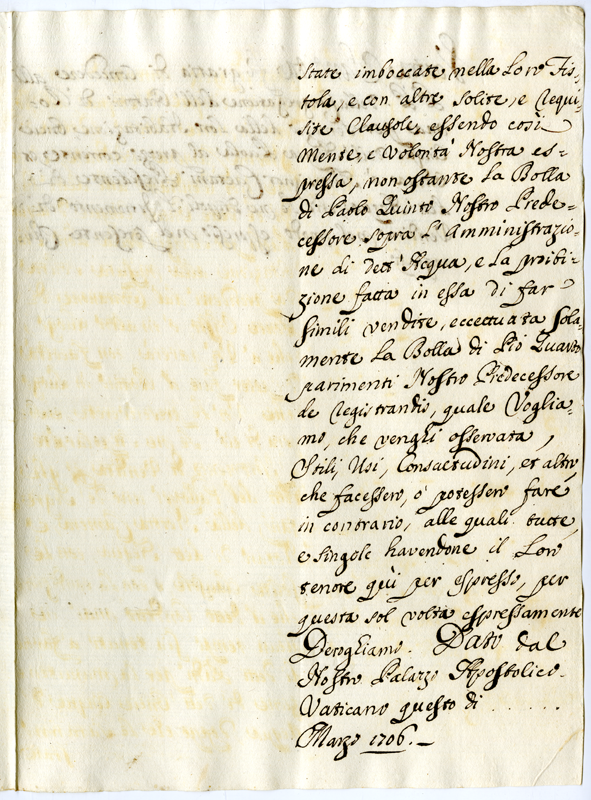 state imboccate nella Loro Fis-
tola, e con altre solite, e requi-
site Clausole, essendo così
Mente, e Volontà Nostra es-
pressa, non ostante La Bolla
di Paolo Quinto Nostro Prede-
cessore sopra L'Amministrazio-
ne di dett'Acqua, e La proibi-
zione fatta in essa di far
simili vendite, eccettuata sola-
mente La Bolla di Pio Quarto
parimenti Nostro Predecessore
de registrandis, quale Voglia-
mo, che venghi osservata,
Stili, Usi, Consuetudini, et altro,
che facessero, ò potessero fare
in contrario, alle quali tutte,
e singole havendone il Loro
tenore quì per espresso, per
questa sol volta espressamente
Deroghiamo. Dato dal
Nostro Palazzo Apostolico
Vaticano questo dì . . . . . .
Marzo 1706.